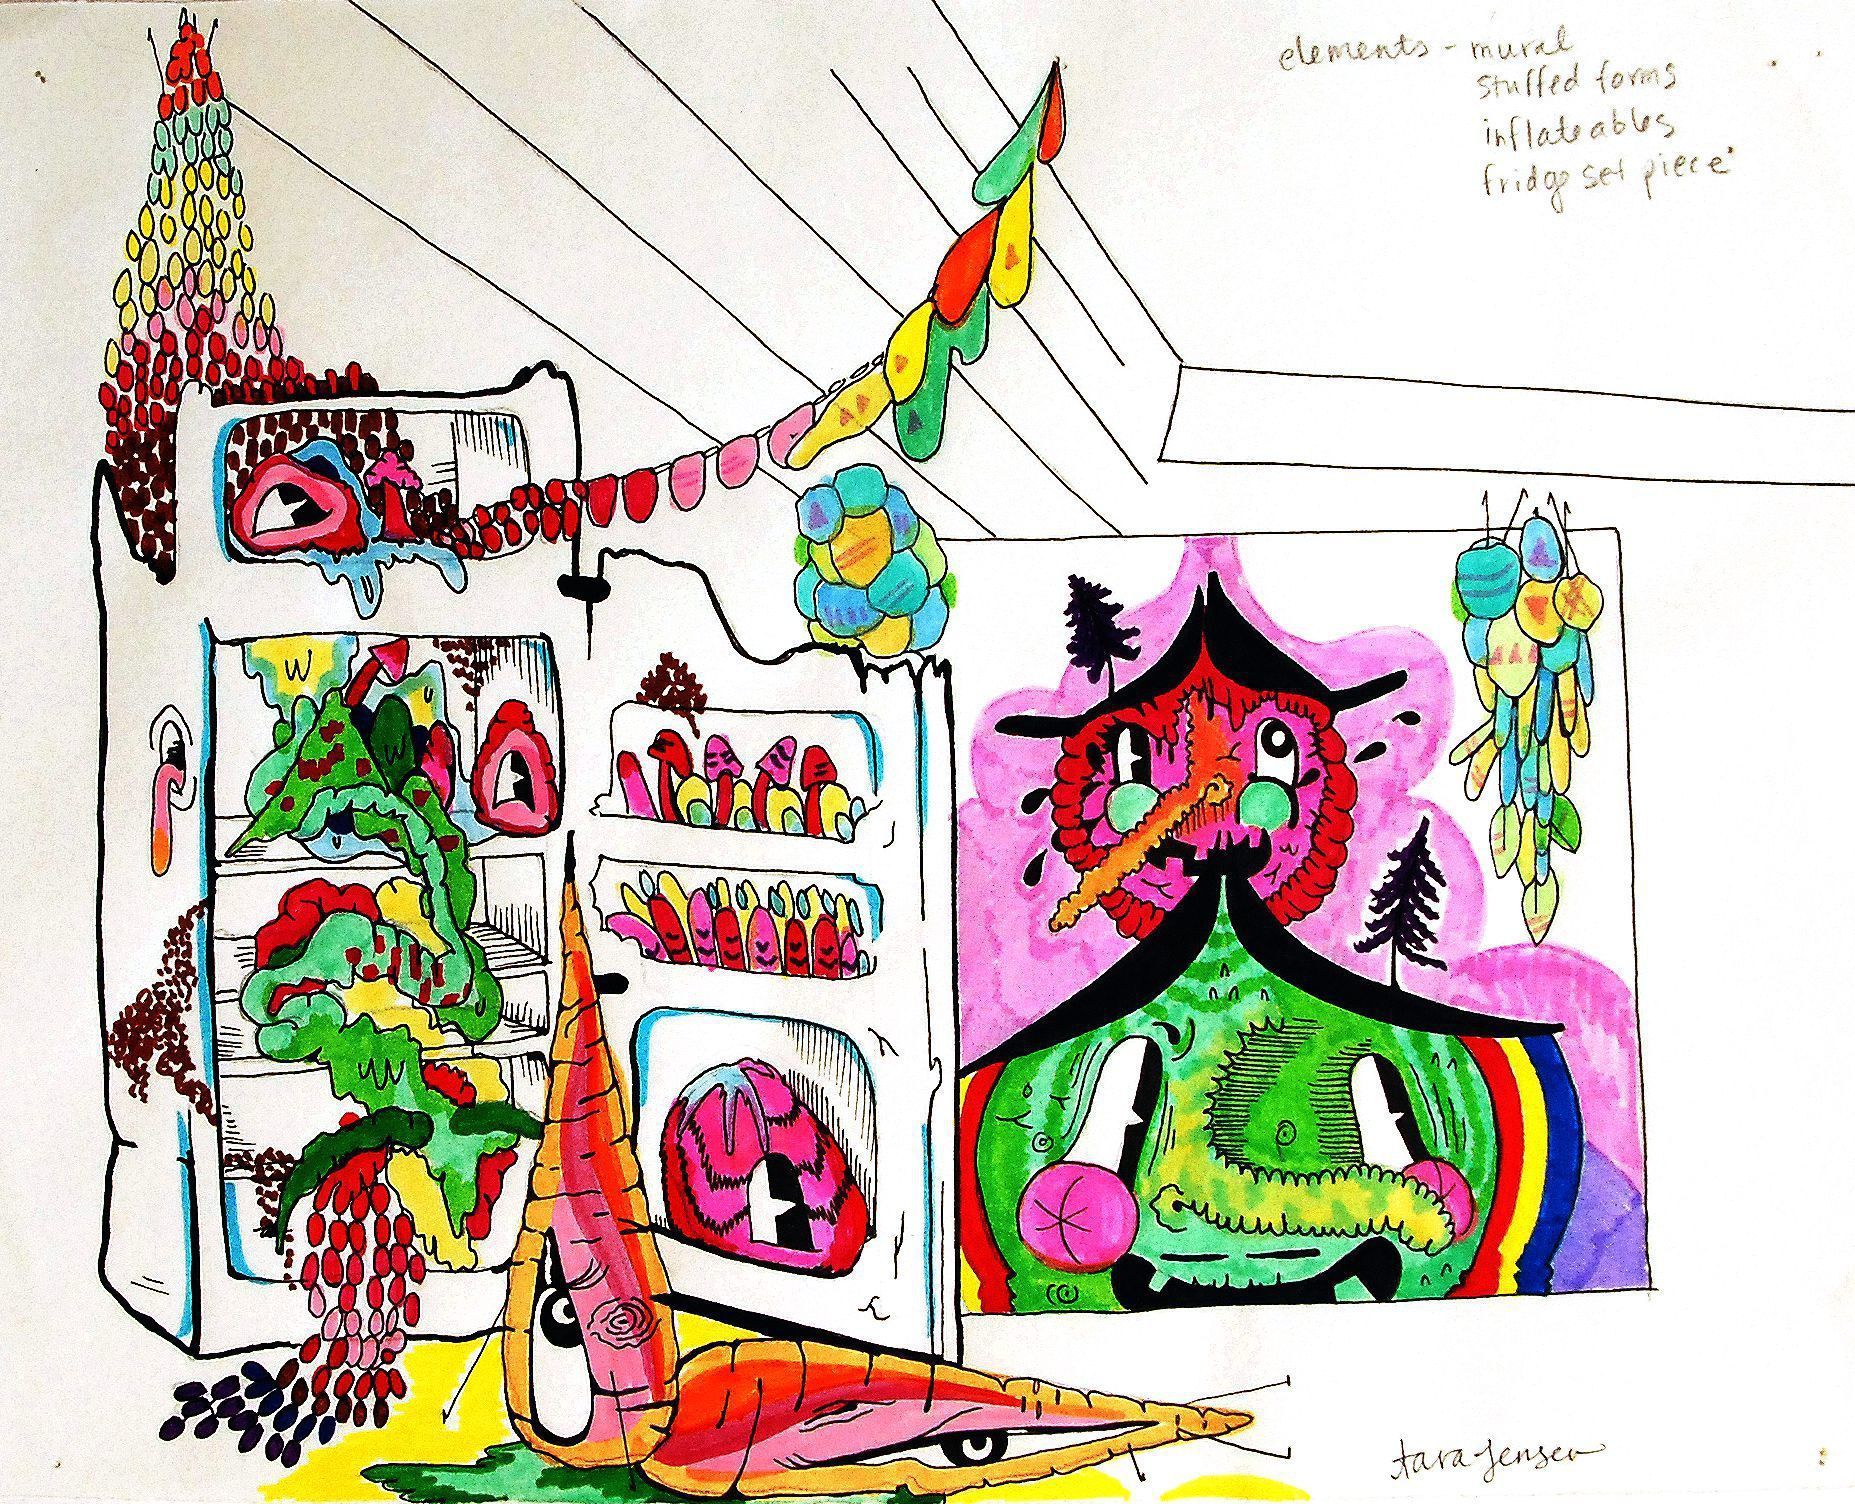 elements - mural
stuffed forms
inflateables
fridge set piece
tara Jensen